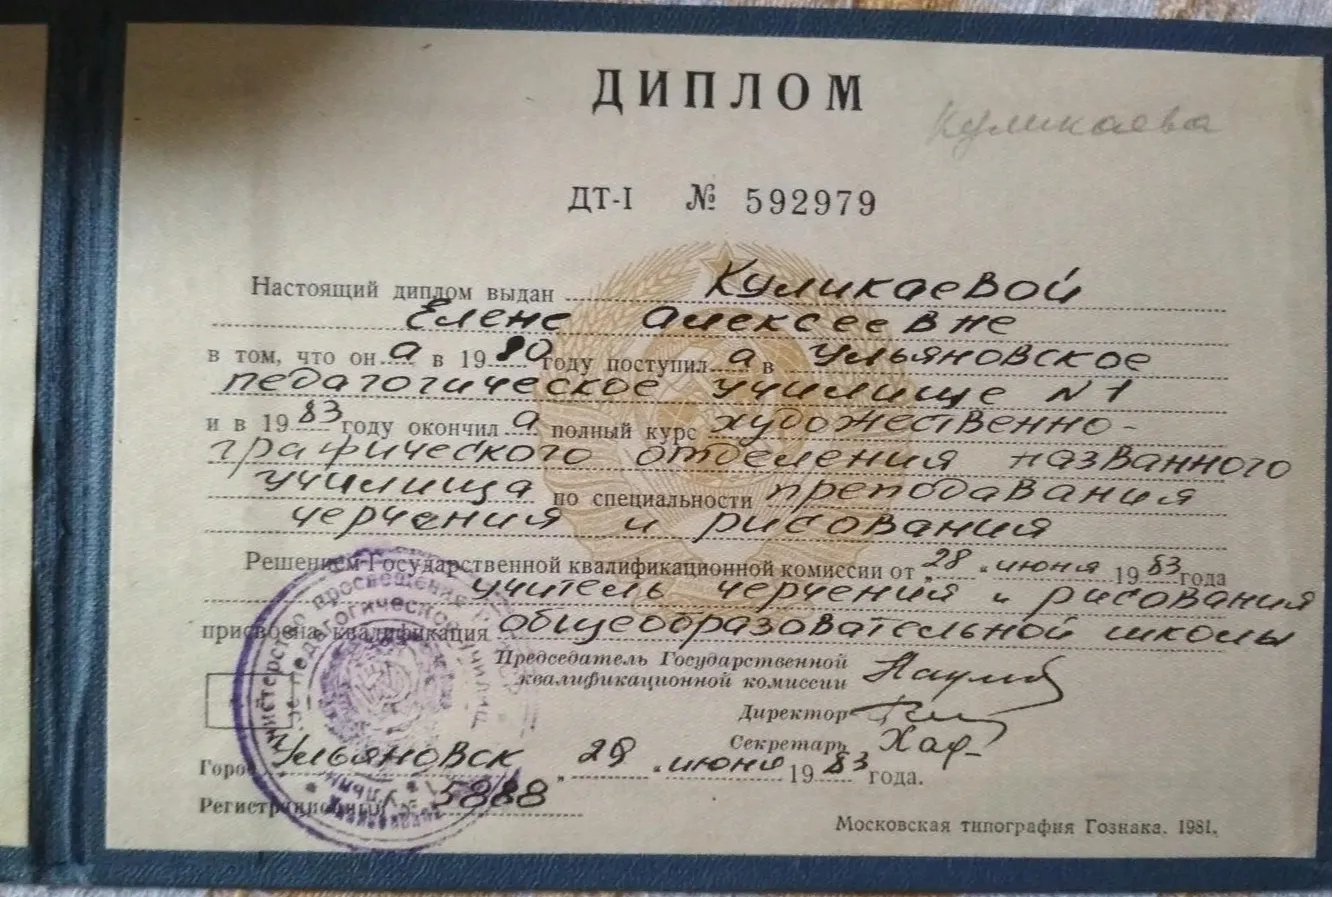 ДИПЛОМ
Куликаева
ДТ-I № 592979
Настоящий диплом выдан Куликаевой
Елене Алексеевне
в том, что он а в 19 80 году поступил а в Ульяновское
педагогическое училище N1
и в 19 83 году окончил а полный курс художественно-
графического отделения названного
училища по специальности преподавания
черчения и рисования
Решением Государственной квалификационной комиссии от „ 28 “ июня 19 83 года
учитель черчения и рисования
присвоена квалификация общеобразовательной школы
Председатель Государственной
квалификационной комиссии
Директор
Секретарь
Город Ульяновск „ 28 “ июня 19 83 года.
Регистрационный № 5888
Московская типография Гознака. 1981.